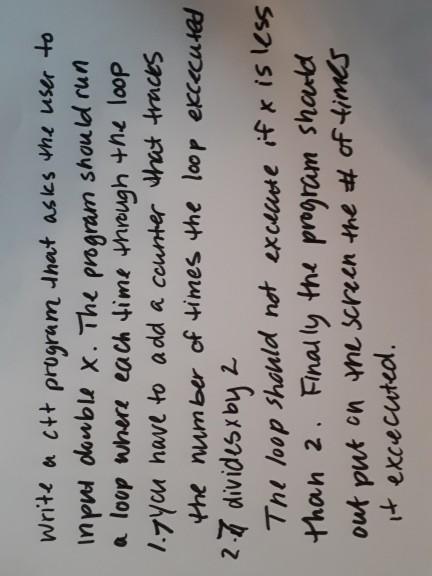 Write a c++ program that asks the user to
input double x. The program should run
a loop where each time through the loop
1.→you have to add a counter that traces
the number of times the loop excecuted
2.→ divides x by 2
The loop should not excecute if x is less
than 2. Finally the program should
out put on the screen the # of times
it excecuted.